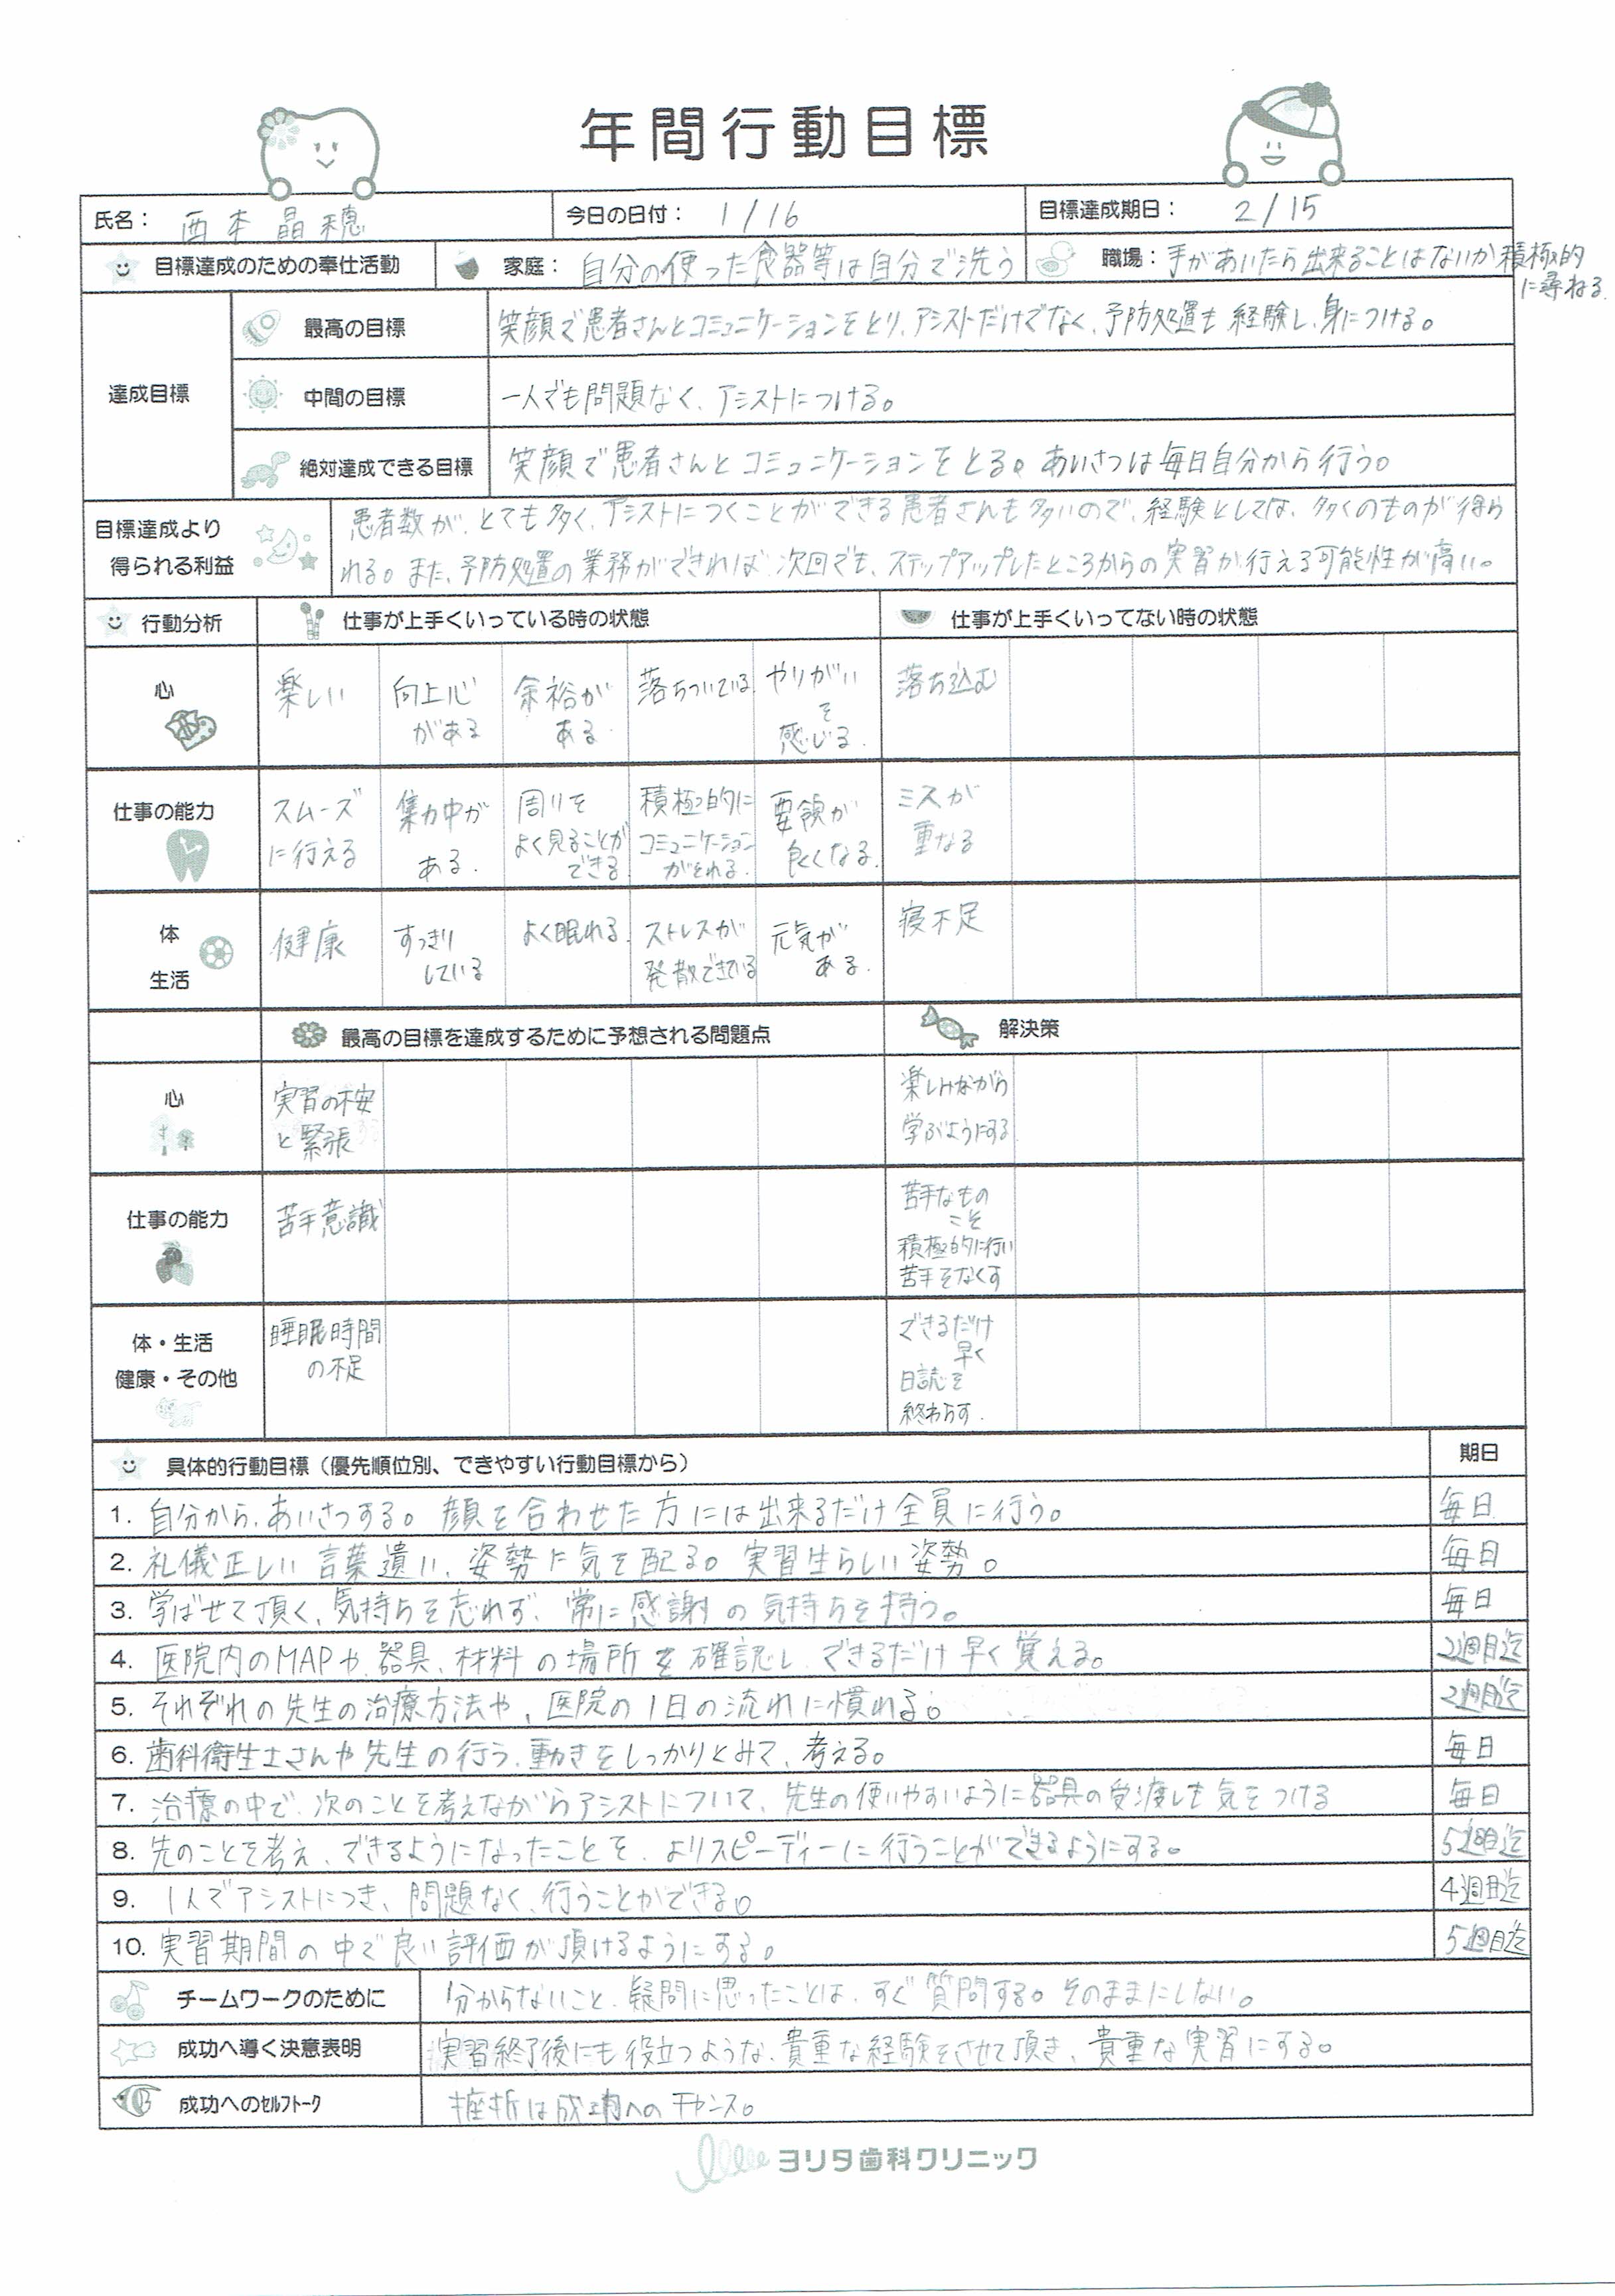 年間行動目標
氏名： 西本 晶穂 今日の日付： 1/16 目標達成期日： 2/15
目標達成のための奉仕活動 家庭： 自分の使った食器等は自分で洗う 職場： 手があいたら出来ることはないか積極的
に尋ねる
達成目標
最高の目標 笑顔で患者さんとコミュニケーションをとり、アシストだけでなく、予防処置も経験し、身につける。
中間の目標 一人でも問題なく、アシストにつける。
絶対達成できる目標 笑顔で患者さんとコミュニケーションをとる。あいさつは毎日自分から行う。
目標達成より
得られる利益
患者数が、とても多く、アシストにつくことができる患者さんも多いので、経験としては、多くのものが得ら
れる。また、予防処置の業務ができれば、次回でも、ステップアップしたところからの実習が行える可能性が高い。
行動分析 仕事が上手くいっている時の状態 仕事が上手くいってない時の状態
心
楽しい
向上心
がある
余裕が
ある
落ちついている
やりがい
を
感じる.
落ち込む
仕事の能力
スムーズ
に行える
集力中が
ある.
周りを
よく見ることが
できる
積極的に
コミュニケーション
がとれる.
要領が
良くなる.
ミスが
重なる
体
生活
健康
すっきり
している
よく眠れる.
ストレスが
発散できている
元気が
ある.
寝不足
最高の目標を達成するために予想される問題点 解決策
心
実習の不安
と緊張
楽しみながら
学ぶようにする
仕事の能力
苦手意識
苦手なもの
こそ
積極的に行い
苦手をなくす
体・生活
健康・その他
睡眠時間
の不足
できるだけ
早く
日誌を
終わらす.
具体的行動目標（優先順位別、できやすい行動目標から） 期日
1. 自分から、あいさつする。顔を合わせた方には出来るだけ全員に行う。 毎日
2. 礼儀正しい言葉遣い、姿勢に気を配る。実習生らしい姿勢。 毎日
3. 学ばせて頂く、気持ちを忘れず、常に感謝の気持ちを持つ。 毎日
4. 医院内のMAPや、器具、材料の場所を確認し、できるだけ早く覚える。 2週目迄
5. それぞれの先生の治療方法や、医院の1日の流れに慣れる。 2週目迄
6. 歯科衛生士さんや先生の行う、動きをしっかりとみて、考える。 毎日
7. 治療の中で、次のことを考えながらアシストについて、先生の使いやすいように器具の受渡しも気をつける 毎日
8. 先のことを考え、できるようになったことを、よりスピーディーに行うことができるようにする。 5週目迄
9. 1人でアシストにつき、問題なく、行うことができる。 4週目迄
10. 実習期間の中で良い評価が頂けるようにする。 5週目迄
チームワークのために 分からないこと、疑問に思ったことは、すぐ質問する。そのままにしない。
成功へ導く決意表明 実習終了後にも役立つような、貴重な経験をさせて頂き、貴重な実習にする。
成功へのセルフトーク 挫折は成功へのチャンス。
ヨリタ歯科クリニック